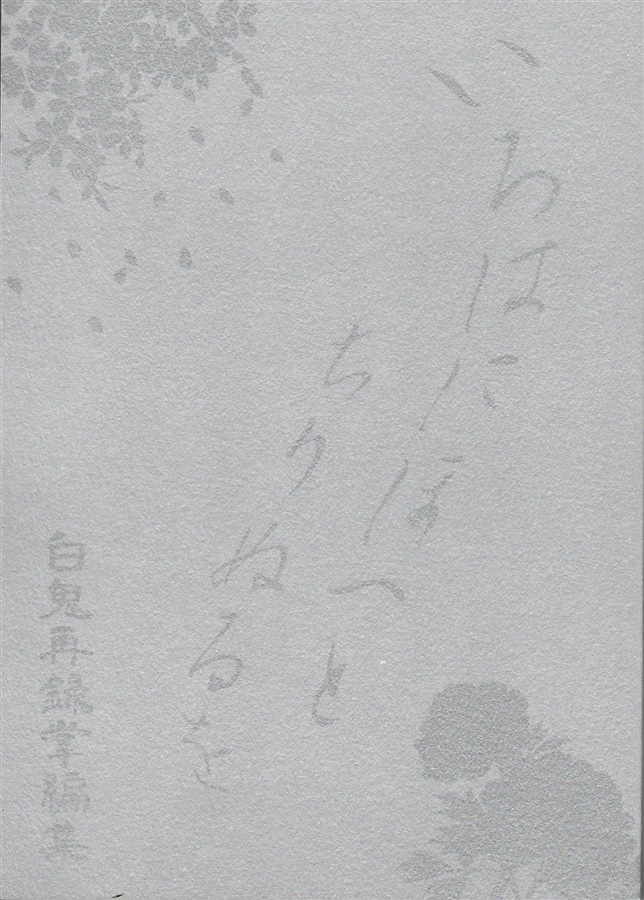 いろはにほへと
ちりぬるを
白鬼再録掌編集